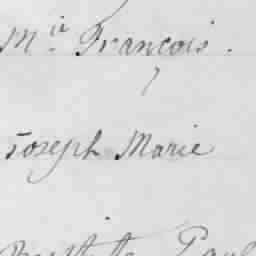 Mie François.
Joseph Marie